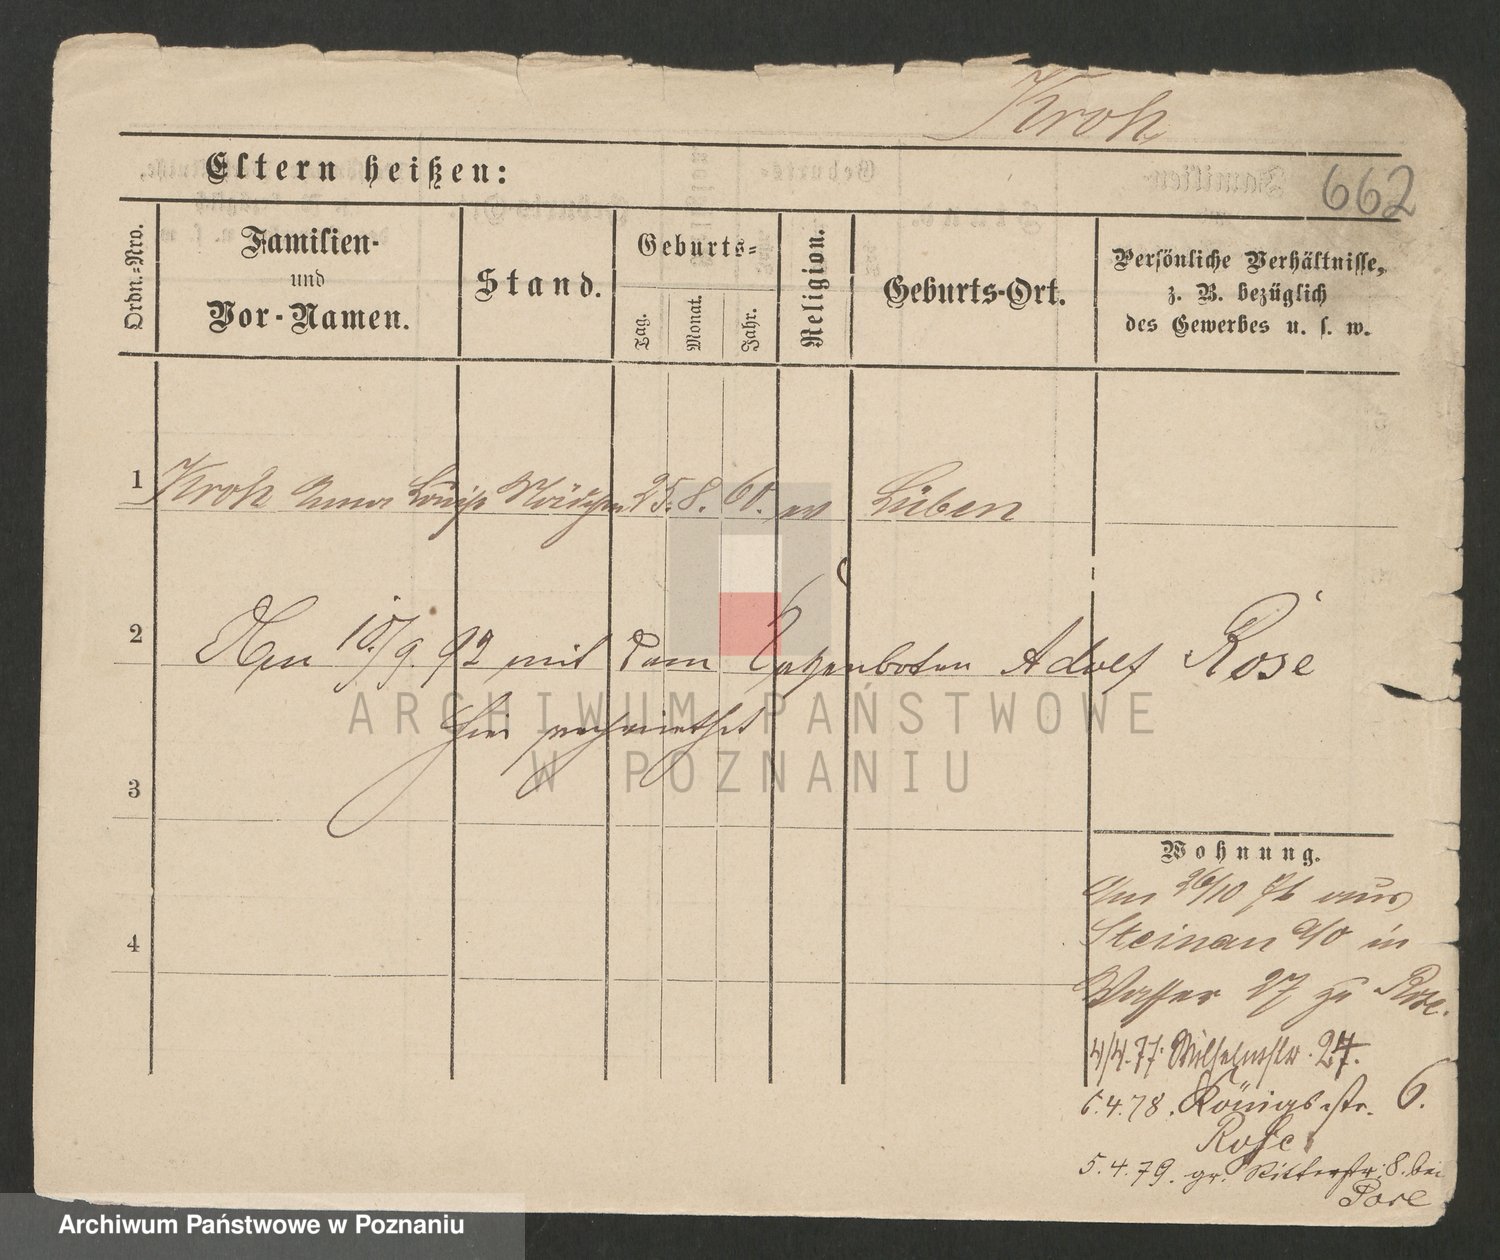 Kroh
Eltern heißen:
662
Ordn.-Nro.
Familien-
und
Vor-Namen.
Stand.
Geburts-
Tag.
Monat.
Jahr.
Religion.
Geburts-Ort.
Persönliche Verhältnisse,
z. B. bezüglich
des Gewerbes u. s. w.
1 Kroh Anna Louise Mädchen 25. 8. 60. ev Lüben
2 Am 10/9. 92 mit dem Adolf Rose
hier verheirathet
3
4
Wohnung.
Am 26/10 76 aus
Steinau a/O in
Wasser 27 zu Rose.
4/4.77. Wilhelmstr. 24.
6.4.78. Königsstr. 6.
Rose
5.4.79. gr. Ritterstr. 8. bei
Rose
ARCHIWUM PAŃSTWOWE
W POZNANIU
Archiwum Państwowe w Poznaniu